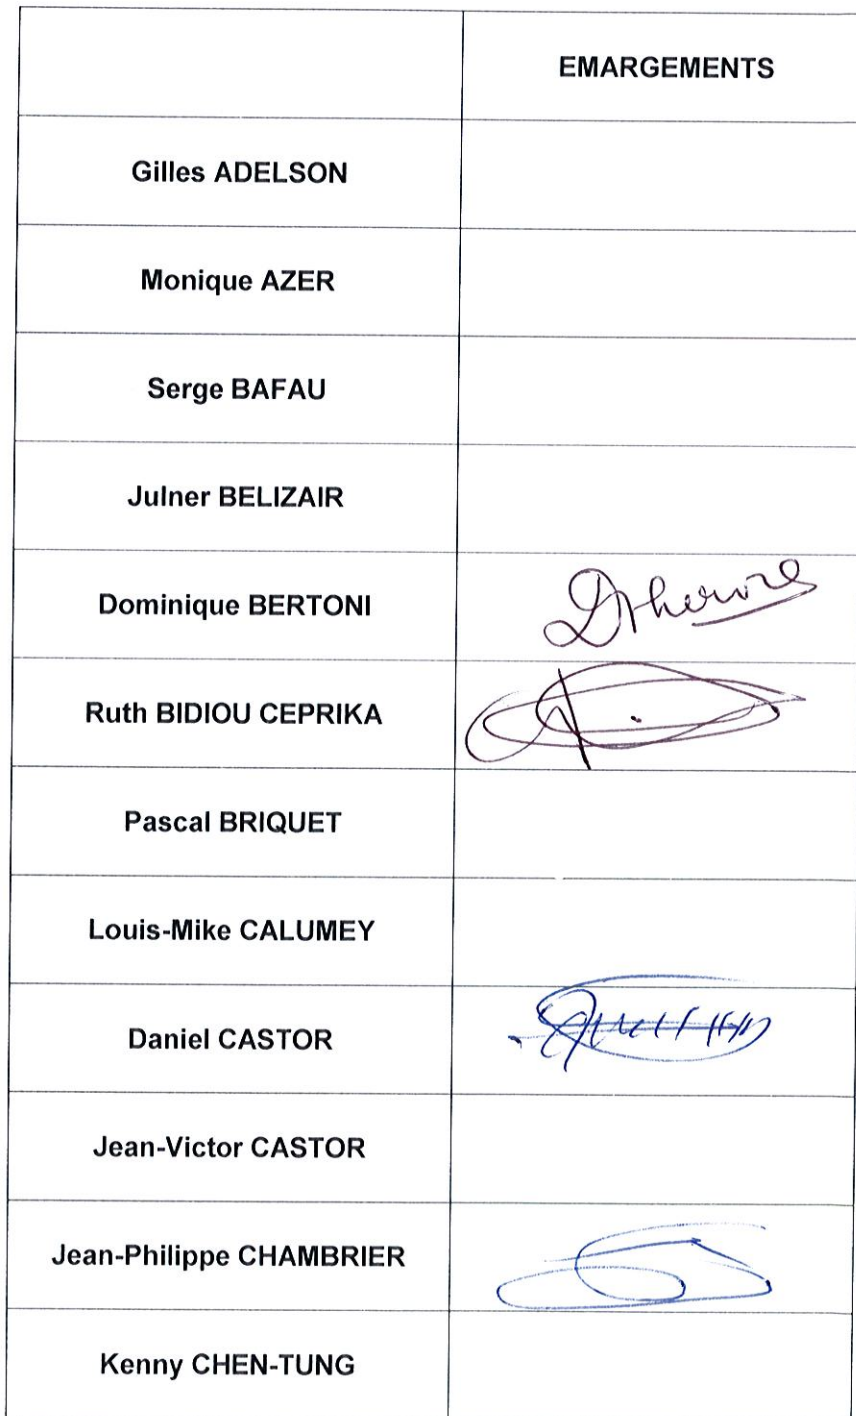 EMARGEMENTS
Gilles ADELSON
Monique AZER
Serge BAFAU
Julner BELIZAIR
Dominique BERTONI
Ruth BIDIOU CEPRIKA
Pascal BRIQUET
Louis-Mike CALUMEY
Daniel CASTOR
Jean-Victor CASTOR
Jean-Philippe CHAMBRIER
Kenny CHEN-TUNG